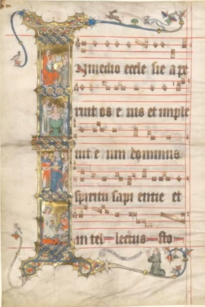 N medio eccle sie a pe
ruit os e ius et imple
uit e um dominus
spiritu sapi entie et
in tel lectus sto